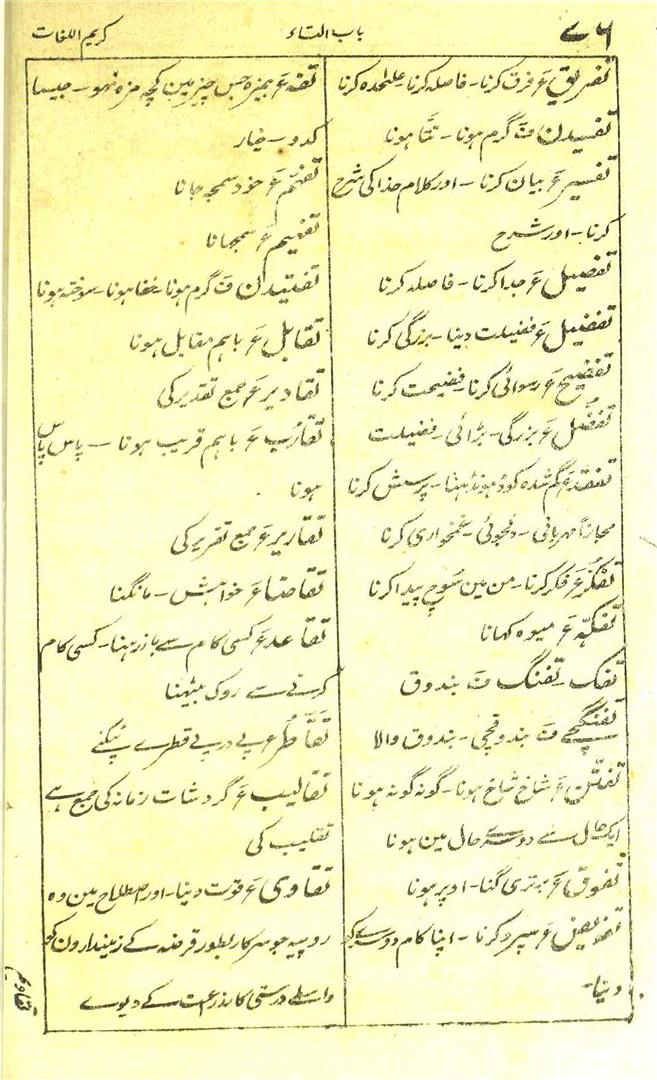 ۷۶
باب التاء
کریم اللغات
تفریق ع فرق کرنا - فاصلہ کرنا - علٰحدہ کرنا
تفسیدن ف گرم ہونا - تتا ہونا
تفسیر ع بیان کرنا - اور کلام خدا کی شرح
کرنا - اور شرح
تفصیل ع جدا کرنا - فاصلہ کرنا
تفضیل ع فضیلت دینا - بزرگی کرنا
تفضیح ع رسوائی کرنا - فضیحت کرنا
تفضّل ع بزرگی - بڑائی - فضیلت
تفقد ع گم شدہ کو ڈہونڈہنا - پرسش کرنا
مجازاً مہربانی - دلجوئی - غمخواری کرنا
تفکّر ع فکر کرنا - من مین سوچ پیدا کرنا
تفکہّ ع میوہ کہانا
تفک - تفنگ ف بندوق
تفنگچے ف بندوقچی - بندوق والا
تفنّن ع شاخ شاخ ہونا - گونہ گونہ ہونا
ایک حال سے دوسرے حال مین ہونا
تفوق ع بہتری گنا - اوپر ہونا
تفویض ع سپرد کرنا - اپنا کام دوسرے کو
دینا -
تفہ ع بیمزہ جس چیز مین کچہ مزہ نہو - جیسا
کدو - خیار
تفہّم ع خود سمجہ جانا
تفہیم ع سمجہانا
تفتیدن ف گرم ہونا - خفا ہونا - سوختہ ہونا
تقابل ع باہم مقابل ہونا
تقادیر ع جمع تقدیر کی
تقارب ع باہم قریب ہونا - پاس پاس
ہونا
تقاریر ع جمع تقریر کی
تقاضا ع خواہش - مانگنا
تقاعد ع کسی کام سے باز رہنا - کسی کام
کرنے سے روک بیٹھنا
تقاطر ع پے در پے قطرے ٹپکنے
تقالیب ع گردشات زمانہ کی جمع ہے
تقلیب کی
تقاوی ع قوت دینا - اور اصطلاح مین وہ
روپیہ جو سرکار بطور قرضہ کے زمیندارون کو
واسطے درستی کار زراعت کے دیوے